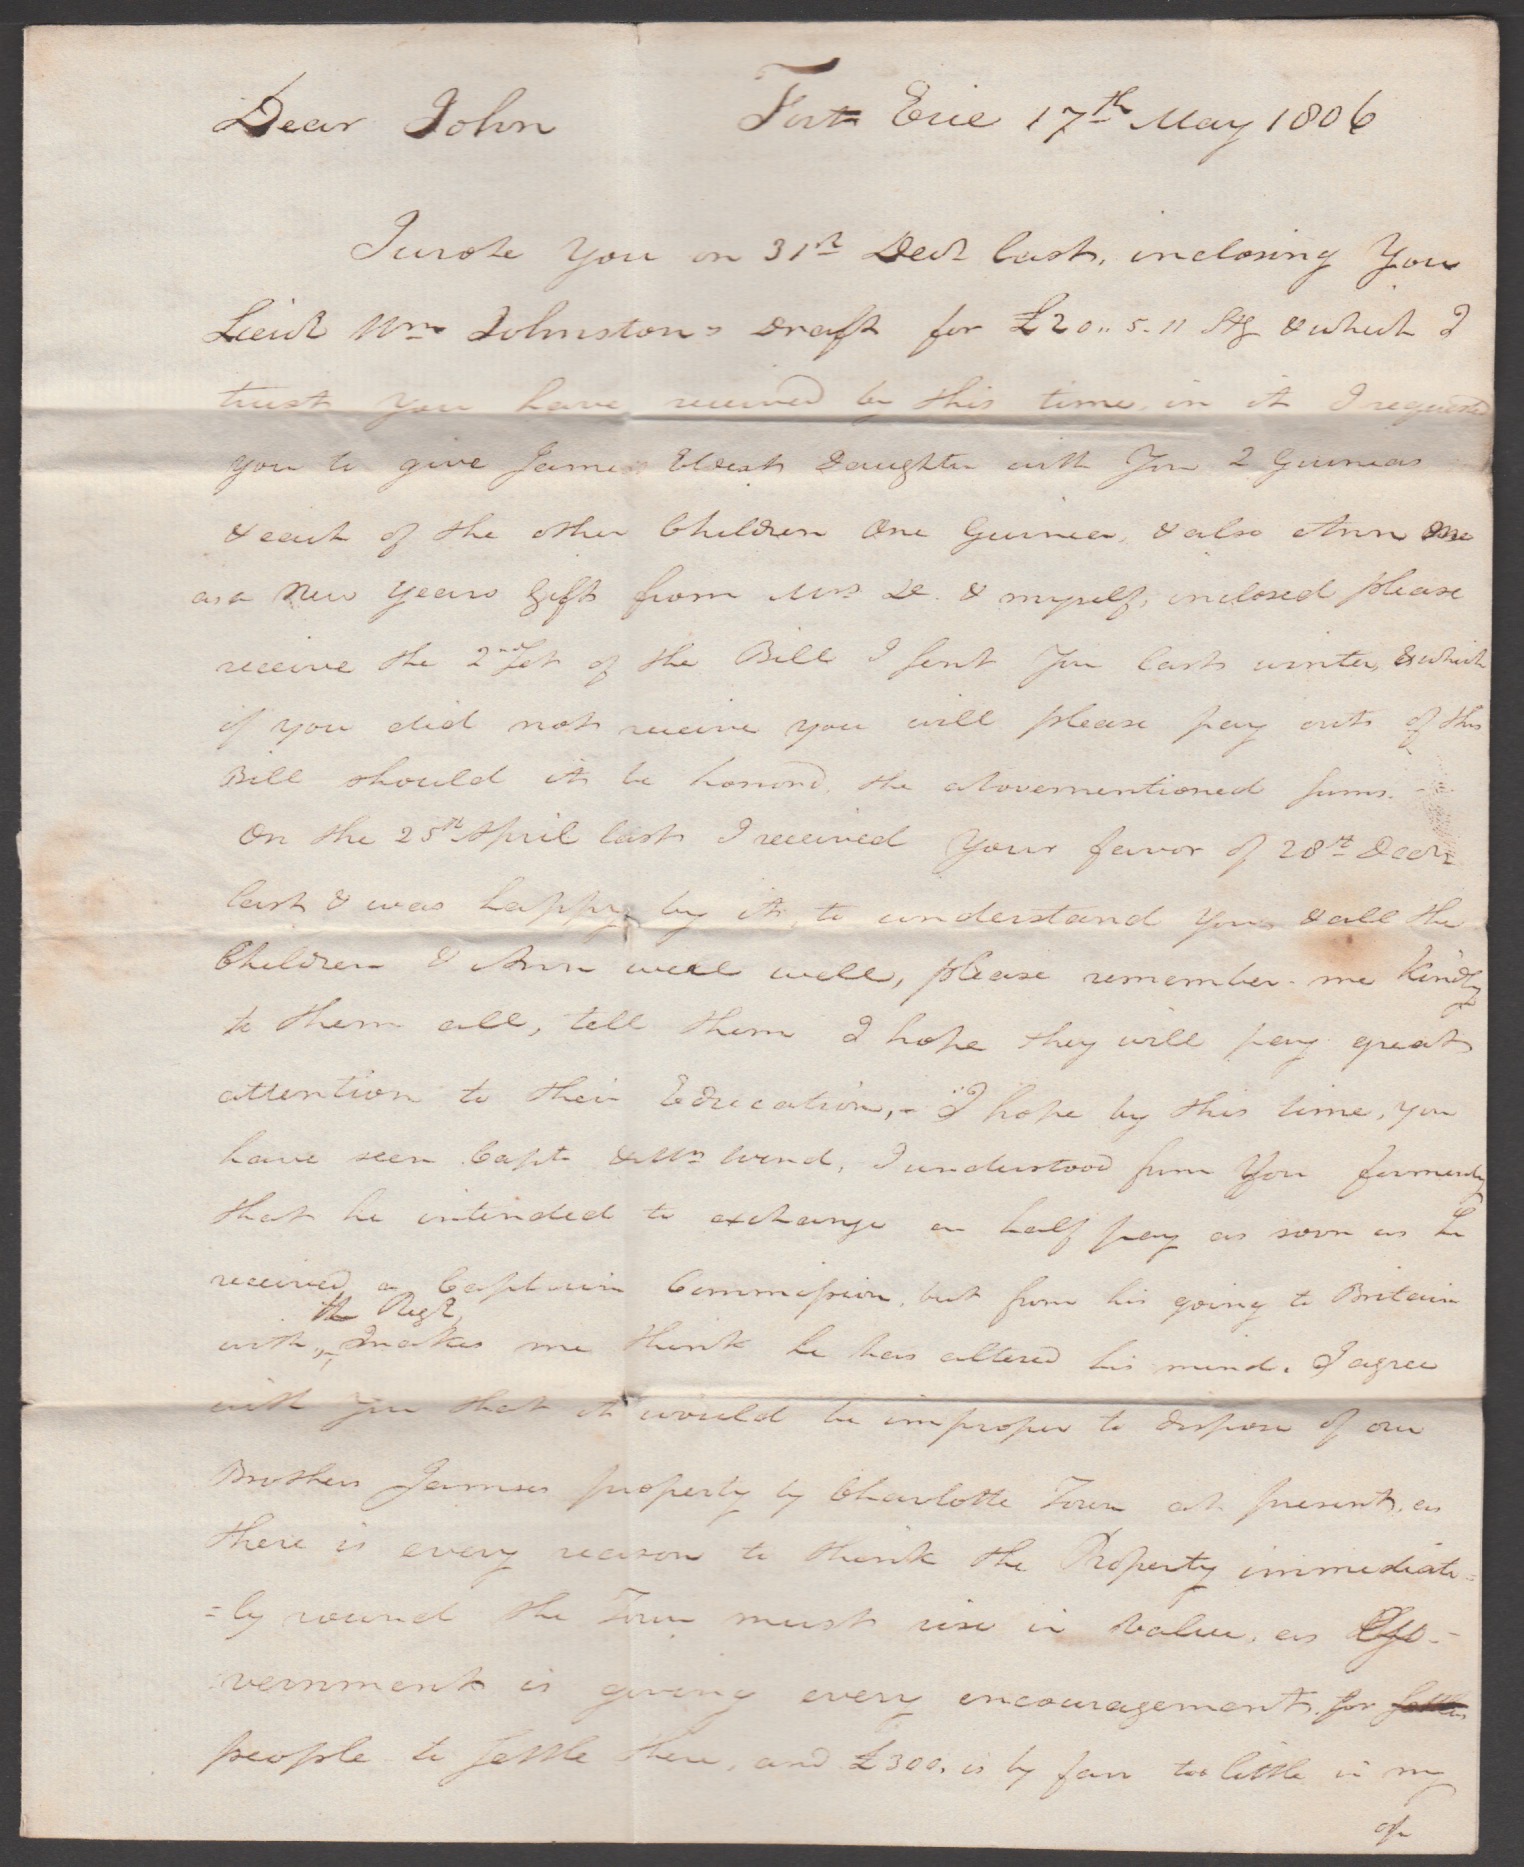 Dear John Fort Erie 17th May 1806
I wrote You on 31st Decr last, inclosing You
Lieut Wm Johnstons Draft for £20..5-11 Stg & which I
trust you have received by this time, in it I requested
you to give James Eldest Daughter with You 2 Guineas
& each of the other Children One Guinea, & also Ann One
as a New Years Gift from Mrs D. & myself, inclosed please
receive the 2nd Set of the Bill I sent You last winter, & which
if you did not receive you will please pay out of this
Bill should it be honord, the abovementioned sums.
On the 25th April last I received Your favor of 28th Decr
last & was happy by it, to understand You & all the
Children & Ann were well, please remember me Kindly
to them all, tell them I hope they will pay great
attention to their Education,- I hope by this time, you
have seen Capt & Mrs Wend, I understood from You formerly
that he intended to exchange on half pay as soon as he
received a Captain Commission, but from his going to Britain
the Regt,
with makes me think he has altered his mind. I agree
with you that it would be improper to dispose of our
Brothers Jamses property by Charlotte Town at present, as
there is every reason to think the Property immediate=
=ly round the Town must rise in Value, as Go-
vernment is giving every encouragement for settlers
people to settle there, and £300. is by far too little in my
op